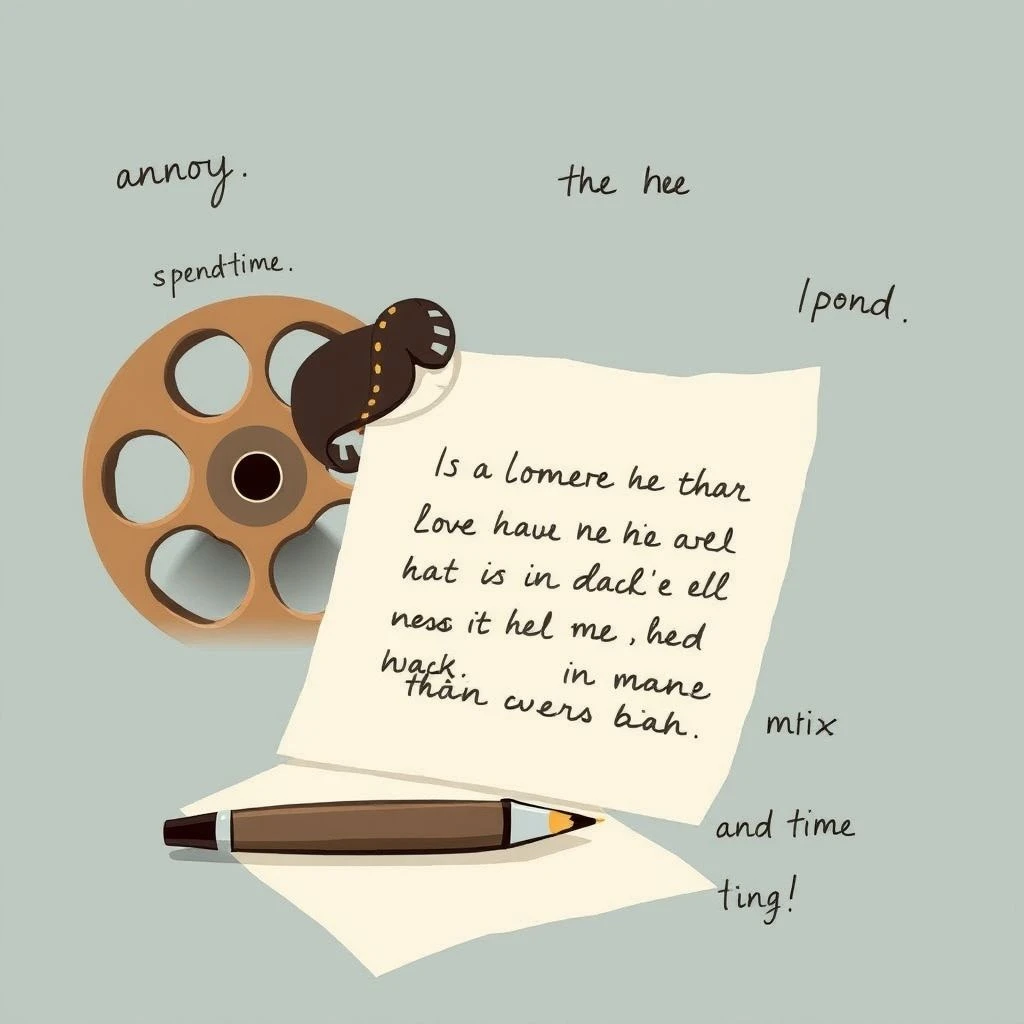 annoy.
the hee
spendtime.
lpond.
Is a lomere he thar
Love haue ne hie arel
hat is in dack'e ell
ness it hel me, hed
hwack. in mane
thân cvers biah.
mtix
and time
ting!